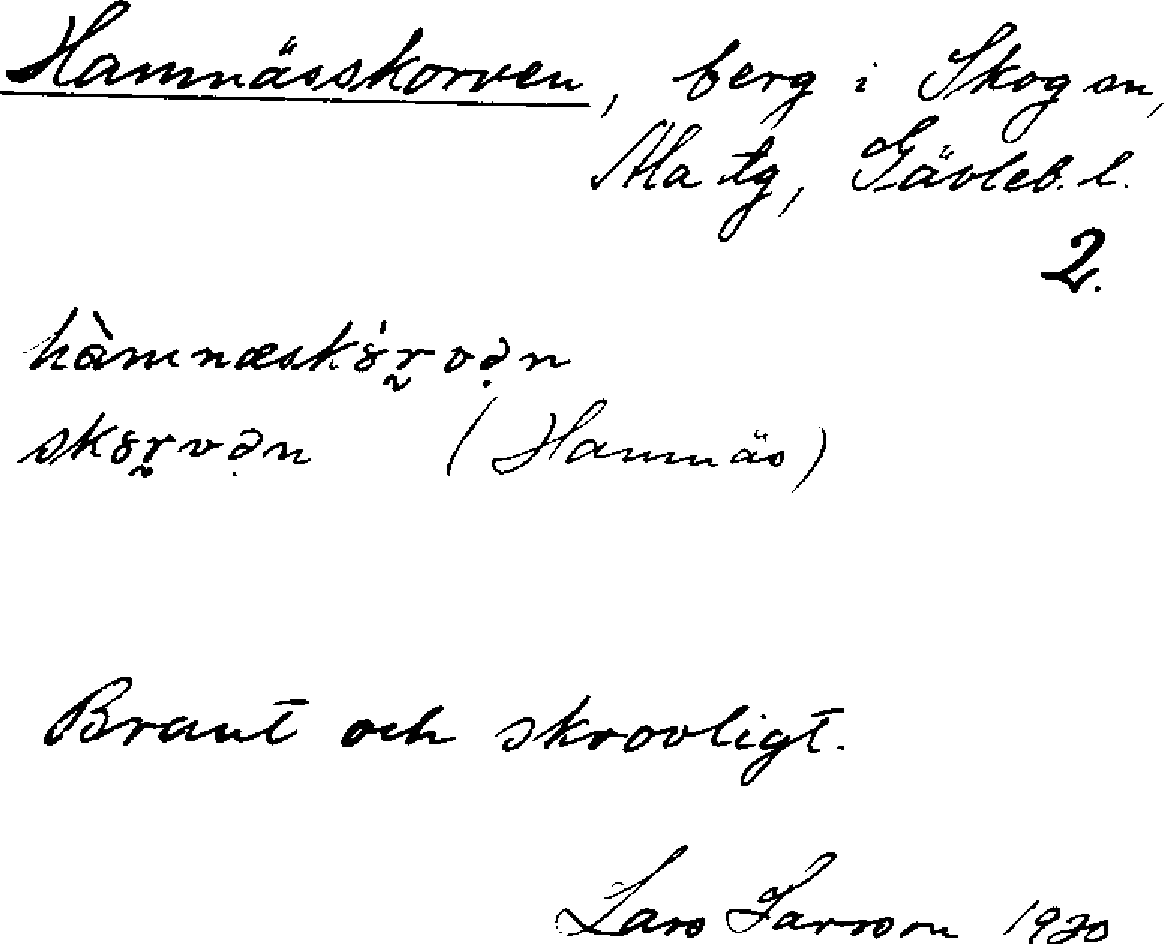 Hamnässkorven, berg i Skog sn,
Ala tg, Gävleb. l.
2.
hàmnæskȣ́r̰və̣n
skȣr̰və̣n (Hamnäs)
Brant och skrovligt.
Lars Larsson 1920